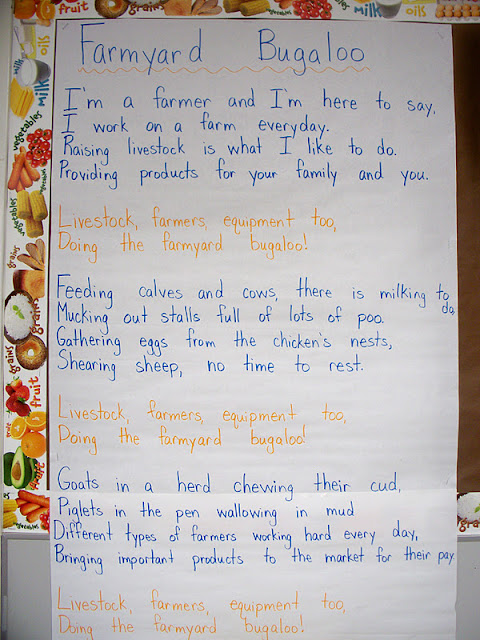 Farmyard Bugaloo
I'm a farmer and I'm here to say,
I work on a farm everyday.
Raising livestock is what I like to do.
Providing products for your family and you.
Livestock, farmers, equipment too,
Doing the farmyard bugaloo!
Feeding calves and cows, there is milking to do
Mucking out stalls full of lots of poo.
Gathering eggs from the chicken's nests,
Shearing sheep, no time to rest.
Livestock, farmers, equipment too,
Doing the farmyard bugaloo!
Goats in a herd chewing their cud,
Piglets in the pen wallowing in mud
Different types of farmers working hard every day,
Bringing important products to the market for their pay
Livestock, farmers, equipment too,
Doing the farmyard bugaloo!
fruit
milk
oils
milk
vegetables
vegetables
grains
grains
grains
fruit
fruit
vegetables
fruit
milk
oils
grains